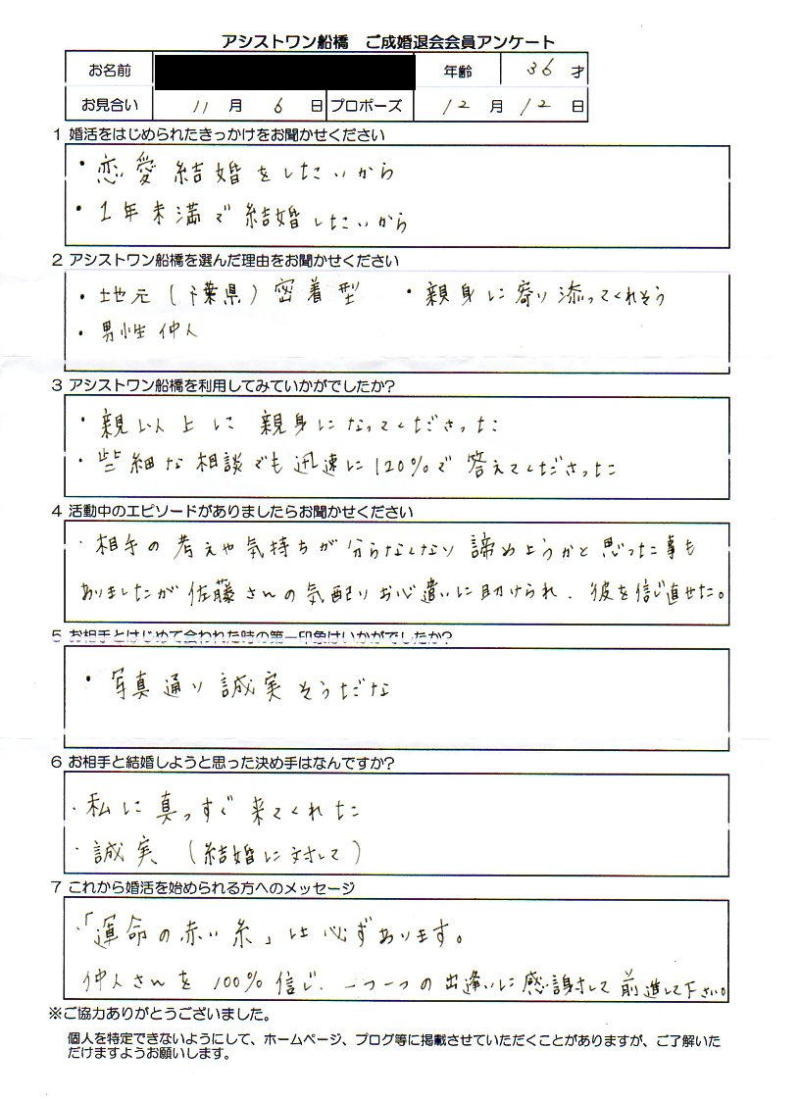 アシストワン船橋　ご成婚退会会員アンケート
お名前　年齢　36才
お見合い　11月6日　プロポーズ　12月12日
1 婚活をはじめられたきっかけをお聞かせください
・恋愛結婚をしたいから
・1年未満で結婚したいから
2 アシストワン船橋を選んだ理由をお聞かせください
・地元（千葉県）密着型　・親身に寄り添ってくれそう
・男性仲人
3 アシストワン船橋を利用してみていかがでしたか?
・親以上に親身になってくださった
・些細な相談でも迅速に120%で答えてくださった
4 活動中のエピソードがありましたらお聞かせください
・相手の考えや気持ちが分らなくなり諦めようかと思った事も
ありましたが佐藤さんの気配りお心遣いに助けられ、彼を信じ直せた。
5 お相手とはじめて会われた時の第一印象はいかがでしたか?
・写真通り誠実そうだな
6 お相手と結婚しようと思った決め手はなんですか?
・私に真っすぐ来てくれた
・誠実（結婚に対して）
7 これから婚活を始められる方へのメッセージ
・「運命の赤い糸」は必ずあります。
仲人さんを100%信じ、一つ一つの出逢いに感謝して前進して下さい。
※ご協力ありがとうございました。
個人を特定できないようにして、ホームページ、ブログ等に掲載させていただくことがありますが、ご了解いた
だけますようお願いします。